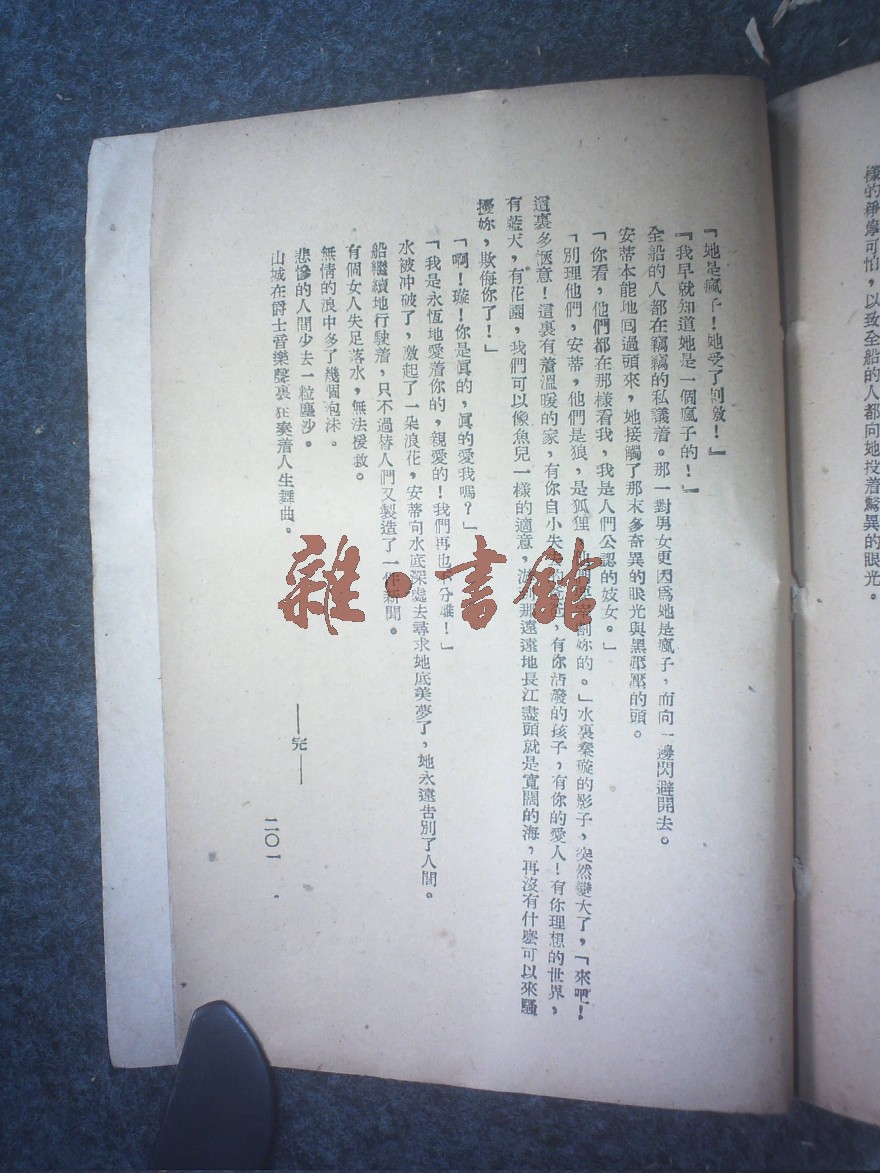 樣的猙獰可怕，以致全船的人都向她投着驚異的眼光。
「她是瘋子！她受了回教！」
「我早就知道她是一個瘋子的！」
全船的人都在竊竊的私議着。那一對男女更因爲她是瘋子，而向一邊閃避開去。
安蒂本能地回過頭來，她接觸了那末多奇異的眼光與黑壓壓的頭。
「你看，他們都在那樣看我，我是人們公認的妓女。」
「別理他們，安蒂，他們是狼，是狐狸，妳的。」水裏秦璇的影子，突然變大了，「來吧！
這裏多愜意！這裏有着溫暖的家，有你自小失，有你活潑的孩子，有你的愛人！有你理想的世界，
有藍天，有花園，我們可以像魚兒一樣的適意，那遠遠地長江盡頭就是寬闊的海，再沒有什麼可以來騷
擾妳，欺侮你了！」
「啊！璇！你是眞的，眞的愛我嗎？」
「我是永恆地愛着你的，親愛的！我們再也分離！」
水被冲破了，激起了一朵浪花，安蒂向水底深處去尋求她底美夢了，她永遠告別了人間。
船繼續地行駛着，只不過替人們又製造了一件新聞。
有個女人失足落水，無法援救。
無情的浪中多了幾個泡沫。
悲慘的人間少去一粒塵沙。
山城在爵士音樂聲裏狂奏着人生舞曲。
——完——
二〇一
雜·書館